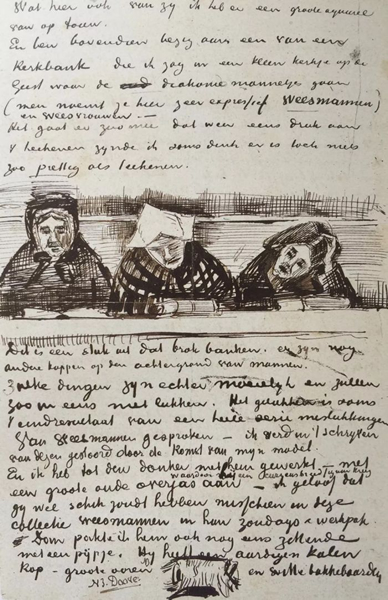 Wat hier ook van zij ik heb er een groote aquarel
van op touw.
En ben bovendien bezig aan een van een
Kerkbank die ik zag in een klein kerkje op de
Geest waar de diakonie mannetjes gaan
(men noemt ze hier zeer expressief Weesmannen)
en weesvrouwen.—
Het gaat er zoo mee dat weer eens druk aan
't teekenen zijnde ik soms denk er is toch niets
zoo prettig als teekenen.
Dit is een stuk uit dat brok banken. er zijn nog
andere koppen op den achtergrond van mannen.
Zulke dingen zijn echter moeielijk en zullen
zoo in eens niet lukken. Het gelukken is soms
't eindresultaat van een heele serie mislukkingen
Van Weesmannen gesproken – ik werd in 't schrijven
van dezen gestoord door de komst van mijn model.
En ik heb tot den donker met hem gewerkt – met
een groote oude overjas aan – ik geloof dat
gij wee schik zoudt hebben misschien in deze
collectie weesmannen in hun zondags & werkpak.
Dan pakte ik hem ook nog eens zittende
met een pijpje. Hij heeft een aardigen kalen
kop – groote ooren en witte bakkebaarden